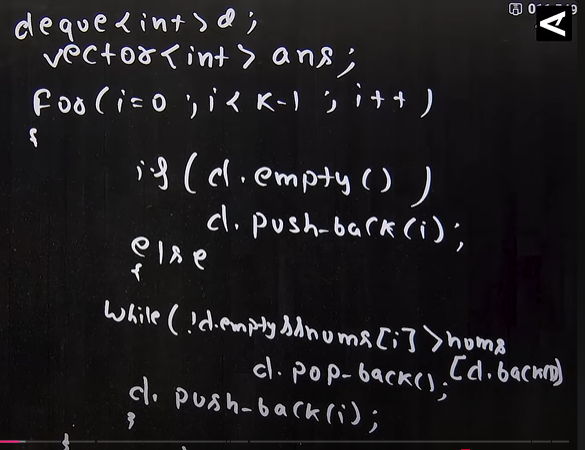 deque<int>d;
vector<int> ans;
for(i=0 ; i< K-1 ; i++)
{
if( d.empty() )
d.push-back(i);
else
{
while(!d.empty&&nums[i]>nums
d.pop-back(); [d.back()])
d.push-back(i);
}